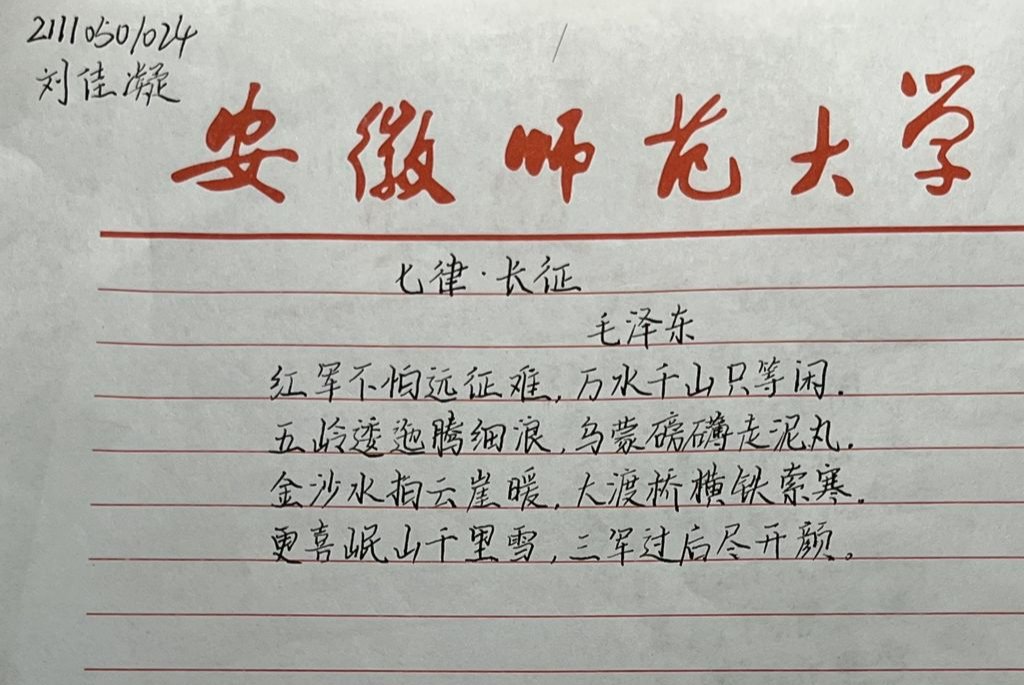 21110501024
刘佳凝
安徽师范大学
七律·长征
毛泽东
红军不怕远征难,万水千山只等闲.
五岭逶迤腾细浪,乌蒙磅礴走泥丸.
金沙水拍云崖暖,大渡桥横铁索寒.
更喜岷山千里雪,三军过后尽开颜。